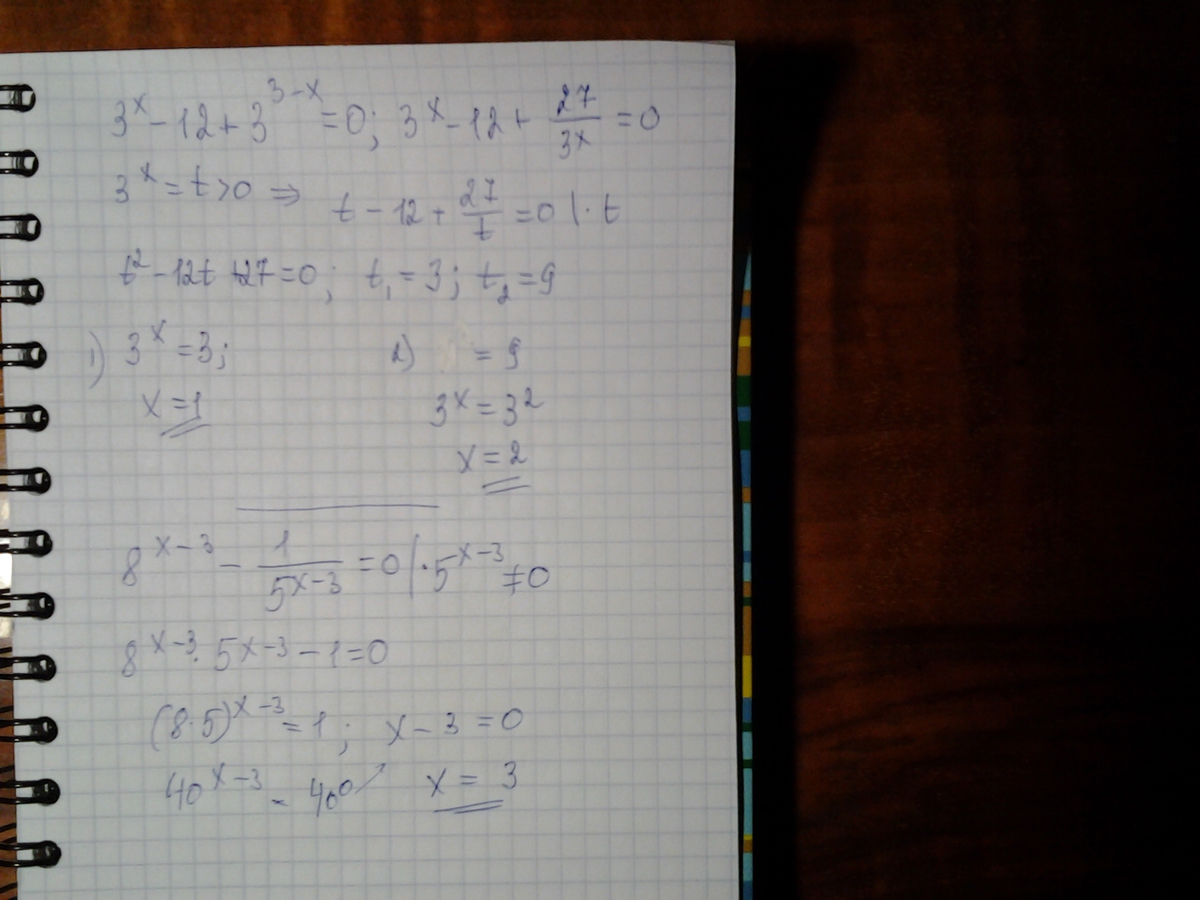 3^x - 12 + 3^(3-x) = 0; 3^x - 12 + 27/3^x = 0
3^x = t > 0 ⇒ t - 12 + 27/t = 0 | · t
t² - 12t + 27 = 0; t₁ = 3; t₂ = 9
1) 3^x = 3; 2) = 9
x = 1 3^x = 3²
x = 2
8^(x-3) - 1/5^(x-3) = 0 | · 5^(x-3) ≠ 0
8^(x-3) · 5^(x-3) - 1 = 0
(8·5)^(x-3) = 1; x - 3 = 0
40^(x-3) = 40⁰ ↗ x = 3